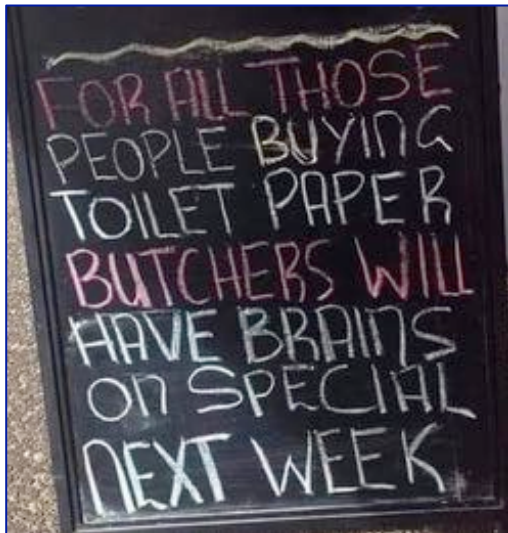 FOR ALL THOSE
PEOPLE BUYING
TOILET PAPER
BUTCHERS WILL
HAVE BRAINS
ON SPECIAL
NEXT WEEK